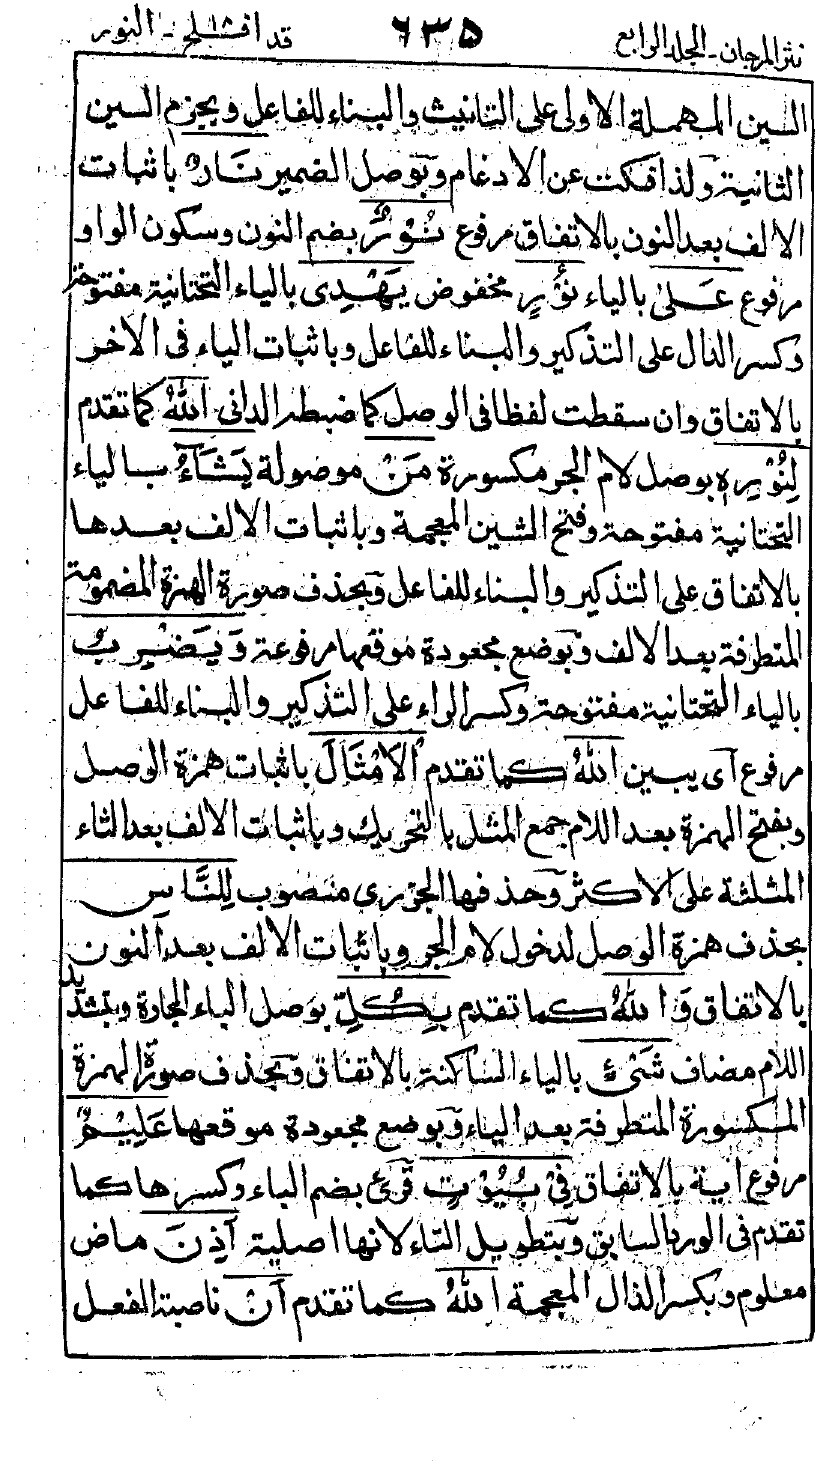 نثر المرجان - الجلد الرابع ٦٣٥ قد افلح ١٨ - النور
السين المهملة الاولى على التانيث والبناء للفاعل وبجزم السين
الثانية ولذا فكت عن الادغام وبوصل الضمير نَارٌ باثبات
الالف بعد النون بالاتفاق مرفوع نُوْرٌ بضم النون وسكون الواو
مرفوع عَلىٰ بالياء نُوْرٍ مخفوض يَهْدِى بالياء التحتانية مفتوحة
وكسر الدال على التذكير والبناء للفاعل وباثبات الياء فى الاخر
بالاتفاق وان سقطت لفظا فى الوصل كما ضبطه الدانى اللهُ كما تقدم
لِنُوْرِهٖ بوصل لام الجر مكسورة مَنْ موصولة يَشَآءُ بالياء
التحتانية مفتوحة وفتح الشين المعجمة وباثبات الالف بعدها
بالاتفاق على التذكير والبناء للفاعل وبحذف صورة الهمزة المضمومة
المتطرفة بعد الالف وبوضع مجعودة موقعها مرفوعة وَيَضْرِبُ
بالياء التحتانية مفتوحة وكسر الراء على التذكير والبناء للفاعل
مرفوع آى يبين اللهُ كما تقدم الْاَمْثَالَ باثبات همزة الوصل
وبفتح الهمزة بعد اللام جمع المثل بالتحريك وباثبات الالف بعد الثاء
المثلثة على الاكثر وحذفها الجزرى منصوب لِلنَّاسِ
بحذف همزة الوصل لدخول لام الجر وباثبات الالف بعد النون
بالاتفاق وَاللهُ كما تقدم بِكُلِّ بوصل الباء الجارة وبتشديد
اللام مضاف شَىْءٍ بالياء الساكنة بالاتفاق وبحذف صورة الهمزة
المكسورة المتطرفة بعد الياء وبوضع مجعودة موقعها عَلِيْمٌ
مرفوع اية بالاتفاق فِىْ بُيُوْتٍ قرئ بضم الباء وكسرها كما
تقدم فى الورد السابق وبتطويل التاء لانها اصلية اَذِنَ ماض
معلوم وبكسر الذال المعجمة اللهُ كما تقدم اَنْ ناصبة الفعل